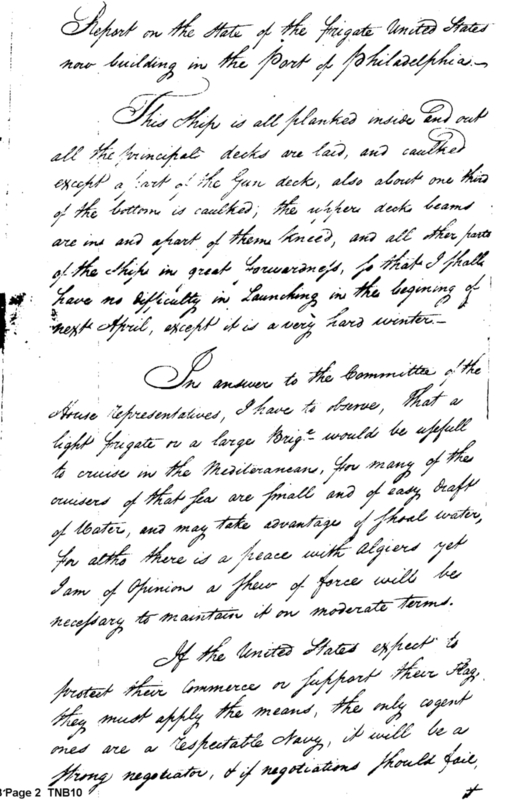 Report on the State of the frigate United States
now building in the Port of Philadelphia—
This Ship is all planked inside and out
all the principal decks are laid, and caulked
except a part of the Gun deck, also about one third
of the bottom is caulked; the upper deck beams
are in and apart of them kneed, and all other parts
of the Ship in great forwardness, so that I shall
have no difficulty in Launching in the begining of
next April, except it is a very hard winter—
In answer to the Committee of the
House representatives, I have to observe, That a
light frigate or a large Brige would be usefull
to cruise in the Mediteranean, for many of the
cruisers of that sea are small and of easy draft
of Water, and may take advantage of shoal water,
for altho there is a peace with Algiers yet
I am of Opinion a shew of force will be
necessary to maintain it on moderate terms.
If the United States expect to
protect their Commerce or support their Flag,
they must apply the means, the only cogent
ones are a respectable Navy, it will be a
strong negotiator, & if negotiations should fail,
Page 2 TNB10